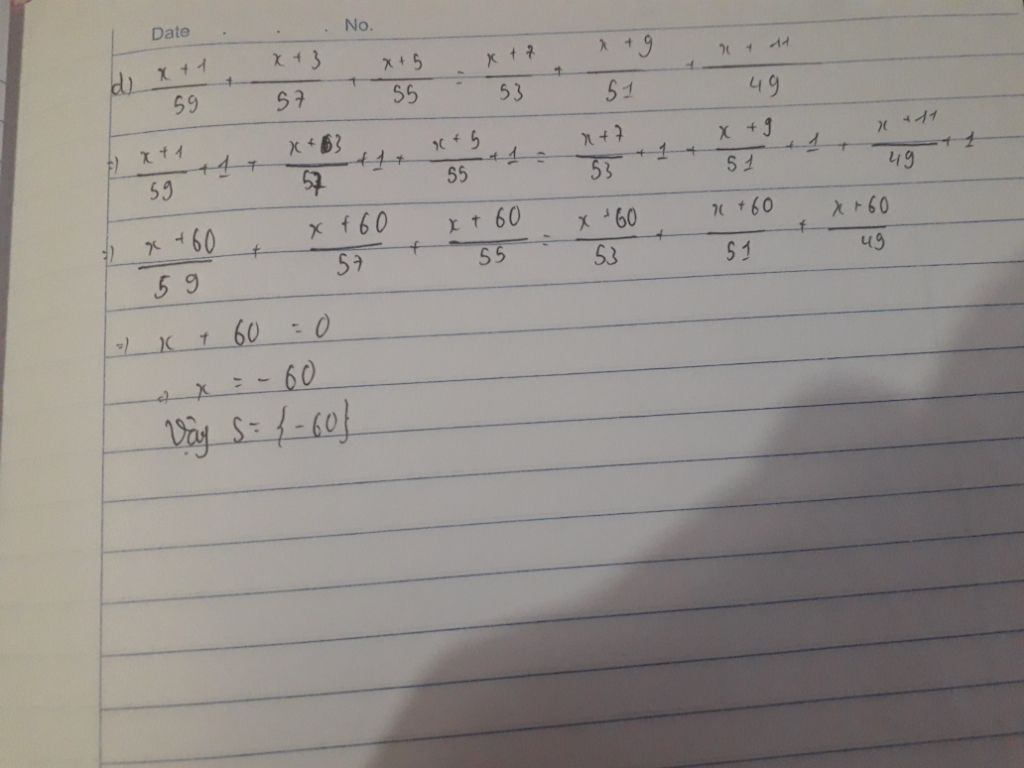 Date . . . No.
d) \frac{x+1}{59} + \frac{x+3}{57} + \frac{x+5}{55} = \frac{x+7}{53} + \frac{x+9}{51} + \frac{x+11}{49}
=) \frac{x+1}{59} + 1 + \frac{x+3}{57} + 1 + \frac{x+5}{55} + 1 = \frac{x+7}{53} + 1 + \frac{x+9}{51} + 1 + \frac{x+11}{49} + 1
=) \frac{x+60}{59} + \frac{x+60}{57} + \frac{x+60}{55} = \frac{x+60}{53} + \frac{x+60}{51} + \frac{x+60}{49}
=) x + 60 = 0
=) x = - 60
Vậy S = {- 60}